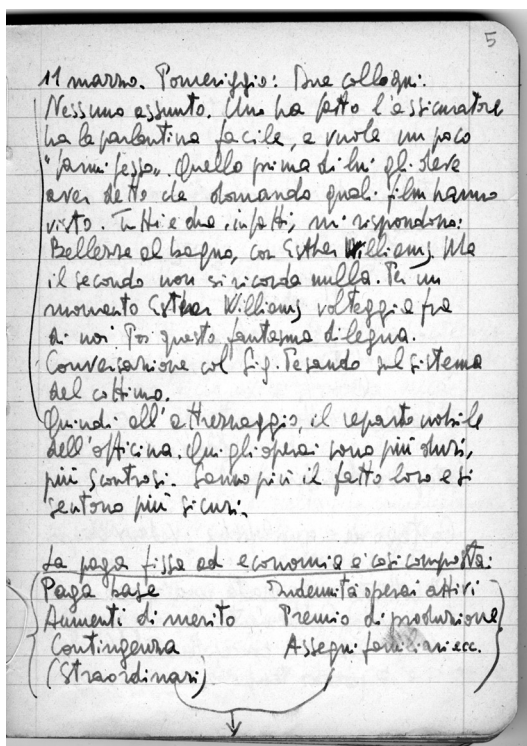 5
11 marzo. Pomeriggio: Due colloqui.
Nessuno assunto. Uno ha fatto l'assicuratore
ha la parlantina facile, e vuole un poco
"farmi fesso". Quello prima di lui gli deve
aver detto che domando quali film hanno
visto. Tutti e due, infatti, mi rispondono:
Bellezze al bagno, con Esther Williams. Ma
il secondo non si ricorda nulla. Per un
momento Esther Williams volteggia fra
di noi. Poi questo fantasma dilegua.
Conversazione col Sig. Pesando sul sistema
del cottimo.
Quindi all'attrezzaggio, il reparto nobile
dell'officina. Qui gli operai sono più duri,
più scontrosi. Sanno più il fatto loro e si
sentono più sicuri.
La paga fissa ad economia è così composta:
Paga base Indennità operai attivi
Aumenti di merito Premio di produzione
Contingenza Assegni familiari ecc.
(Straordinari)